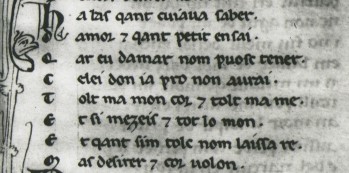 A las qant cuiaua saber.
damor ⁊ qant petit en sai.
Q ar eu damar nom puosc tener.
C elei don ia pro non aurai.
T olt ma mon cor ⁊ tolt ma me.
E t si mezeis ⁊ tot lo mon.
E t qant sim tolc nom laissa re.
M as desirer ⁊ cor uolon.